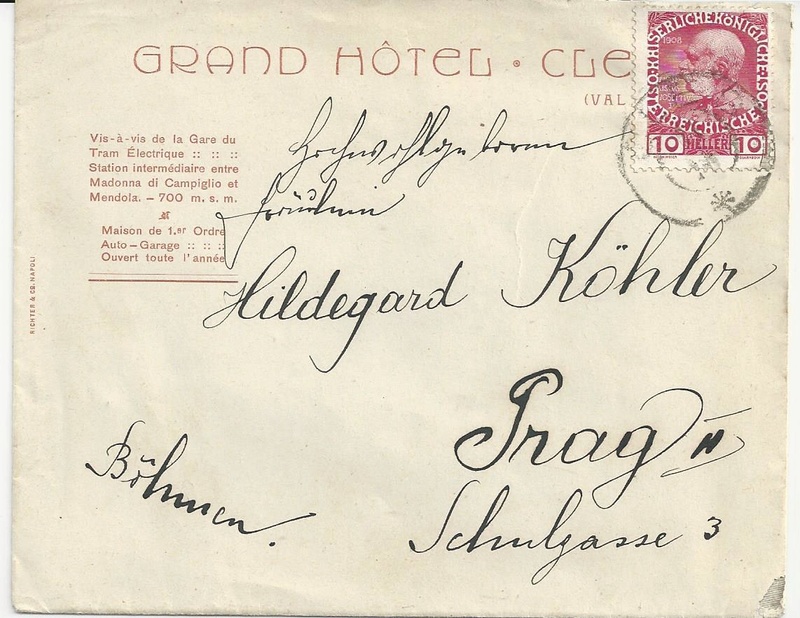 GRAND HÔTEL · CLE
(VAL
Vis-à-vis de la Gare du
Tram Électrique :: :: ::
Station intermédiaire entre
Madonna di Campiglio et
Mendola. – 700 m. s. m.
Maison de 1.er Ordre
Auto – Garage :: :: ::
Ouvert toute l'année
RICHTER & CO. NAPOLI
1908
KAISERLICHE KÖNIGLICHE
ÖSTERREICHISCHE
10 HELLER 10
Hochwohlgeboren
Fräulein
Hildegard Köhler
Prag II
Schulgasse 3
Böhmen.